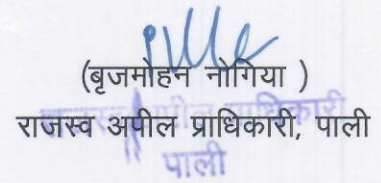 (बृजमोहन नोगिया )
राजस्व अपील प्राधिकारी, पाली
राजस्व अपील प्राधिकारी
पाली